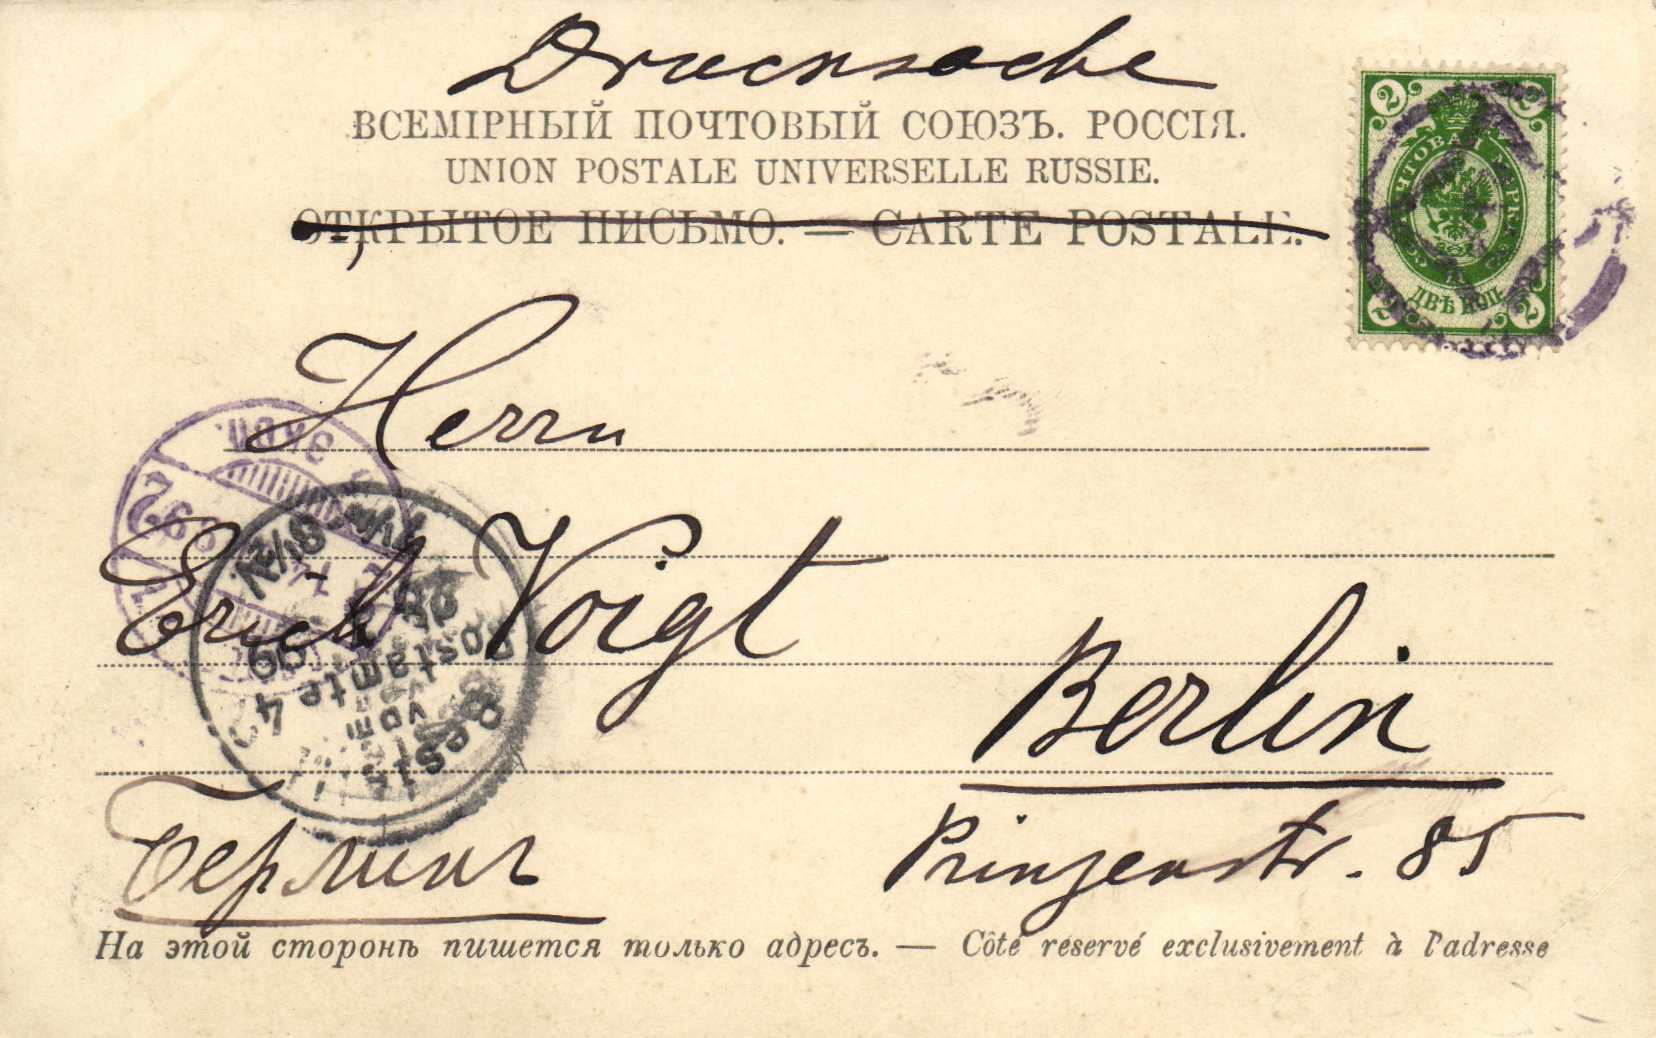 Drucksache
ВСЕМІРНЫЙ ПОЧТОВЫЙ СОЮЗЪ. РОССІЯ.
UNION POSTALE UNIVERSELLE RUSSIE.
ОТКРЫТОЕ ПИСЬМО. — CARTE POSTALE.
2 2
ПОЧТОВАЯ МАРКА
ДВѢ КОП.
2 2
Herrn
Erich Voigt
Berlin
Prinzenstr. 85
Берлинъ
Bestellt
vom
Postamte
99
На этой сторонѣ пишется только адресъ. — Côté réservé exclusivement à l'adresse